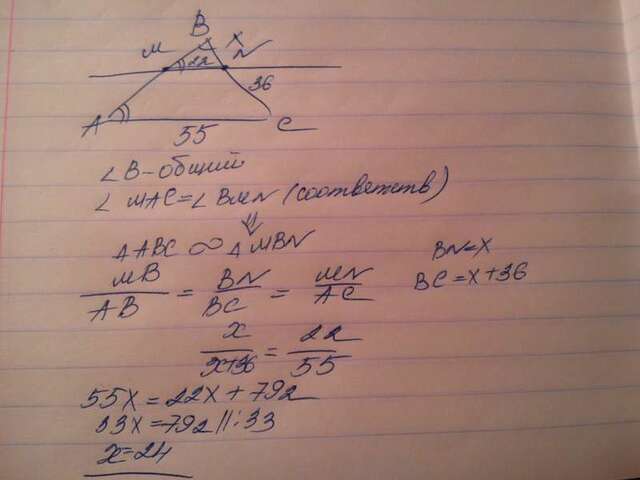 B
M
X
N
22
36
A
55
C
∠B - общий
∠MAC = ∠BMN (соответств)
⇓
ΔABC ∞ ΔMBN
MB/AB = BN/BC = MN/AC
BN=X
BC=X+36
x/x+36 = 22/55
55X = 22X + 792
33X = 792 ||:33
x=24